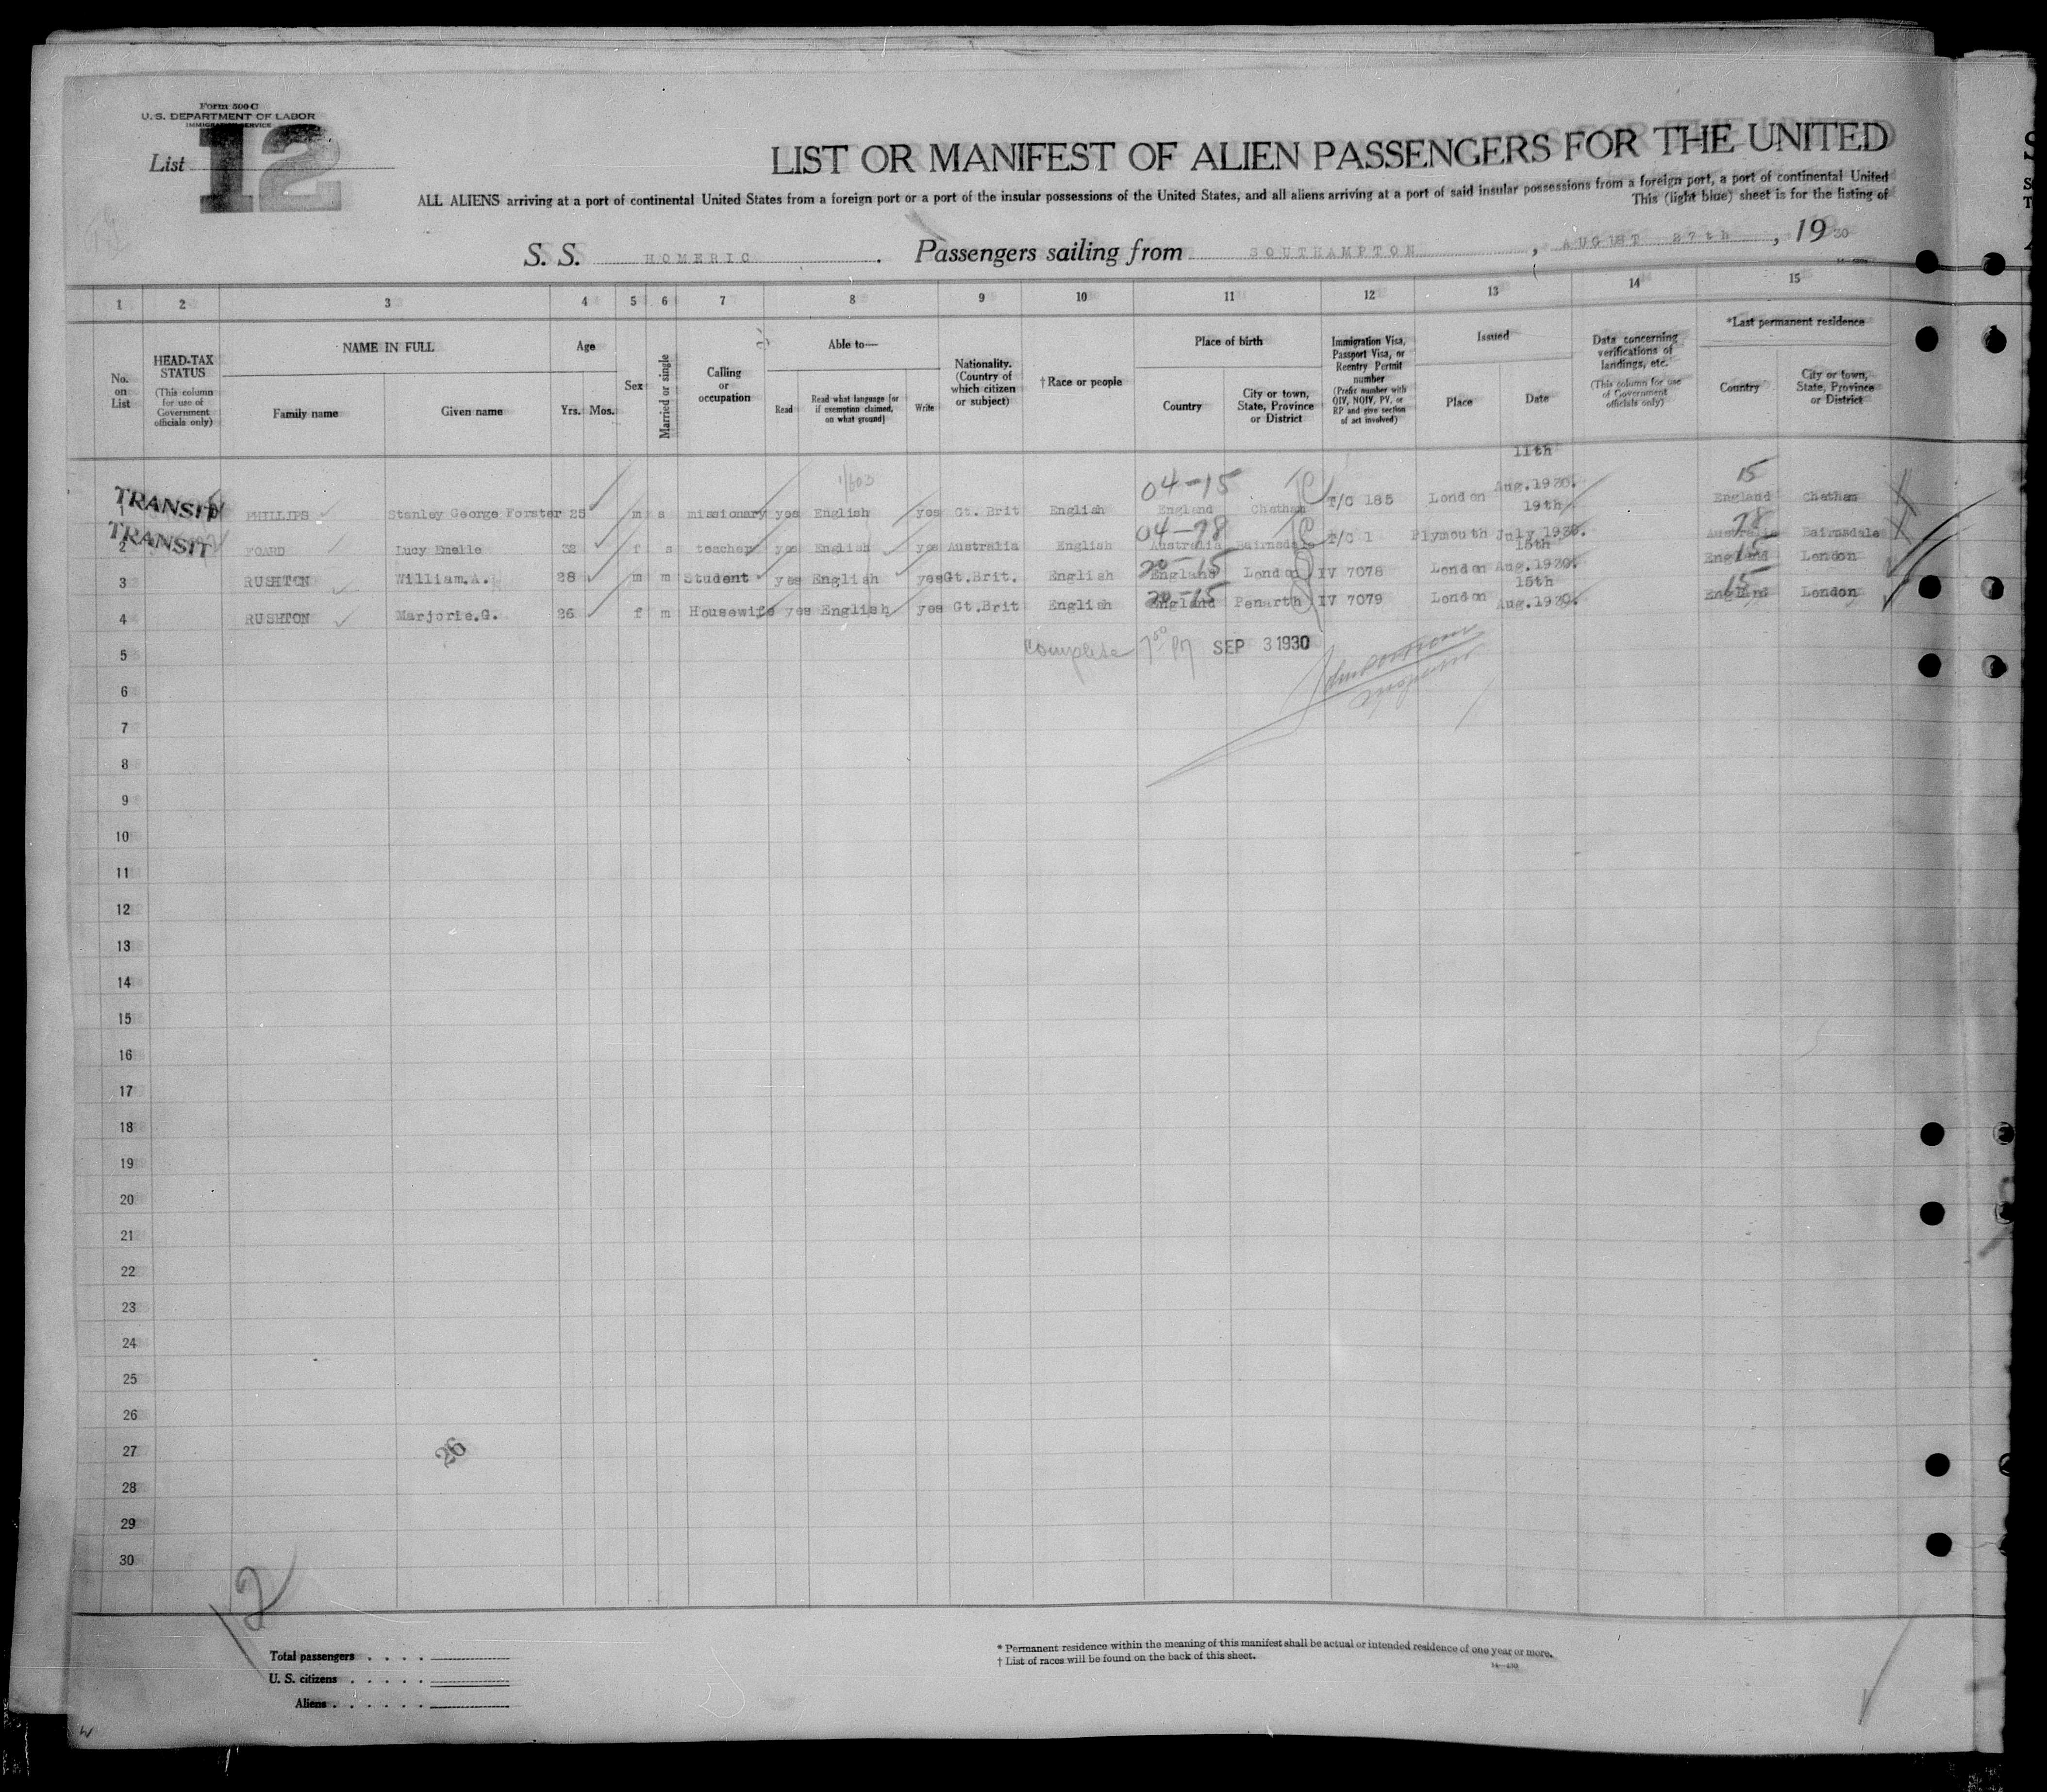 Form 500 C
U. S. DEPARTMENT OF LABOR
IMMIGRATION SERVICE
List 12
LIST OR MANIFEST OF ALIEN PASSENGERS FOR THE UNITED
ALL ALIENS arriving at a port of continental United States from a foreign port or a port of the insular possessions of the United States, and all aliens arriving at a port of said insular possessions from a foreign port, a port of continental United
This (light blue) sheet is for the listing of
S. S. HOMERIC. Passengers sailing from SOUTHAMPTON, AUGUST 27th, 1930
1 2 3 4 5 6 7 8 9 10 11 12 13 14 15
No. on List
HEAD-TAX STATUS (This column for use of Government officials only)
NAME IN FULL
Family name Given name
Age
Yrs. Mos.
Sex
Married or single
Calling or occupation
Able to—
Read Read what language [or if exemption claimed, on what ground] Write
Nationality. (Country of which citizen or subject)
†Race or people
Place of birth
Country City or town, State, Province or District
Immigration Visa, Passport Visa, or Reentry Permit number (Prefix number with QIV, NQIV, PV, or RP and give section of act involved)
Issued
Place Date
Data concerning verifications of landings, etc. (This column for use of Government officials only)
*Last permanent residence
Country City or town, State, Province or District
11th
04-15 15
TRANSIT 1 PHILLIPS Stanley George Forster 25 m s missionary yes English yes Gt. Brit English England Chatham T/C 185 London Aug.1930. England Chatham
19th
04-78 78
TRANSIT 2 FOARD Lucy Emelie 32 f s teacher yes English yes Australia English Australia Bairnsdale T/C 1 Plymouth July 1930. Australia Bairnsdale
15th
20-15 15
3 RUSHTON William.A. 28 m m Student yes English yes Gt.Brit. English England London IV 7078 London Aug.1930. England London
15th
20-15 15
4 RUSHTON Marjorie.G. 26 f m Housewife yes English yes Gt.Brit English England Penarth IV 7079 London Aug.1930. England London
5 Complete SEP 3 1930
6
7
8
9
10
11
12
13
14
15
16
17
18
19
20
21
22
23
24
25
26
27 26
28
29
30
12
Total passengers
U. S. citizens
Aliens
* Permanent residence within the meaning of this manifest shall be actual or intended residence of one year or more.
† List of races will be found on the back of this sheet.